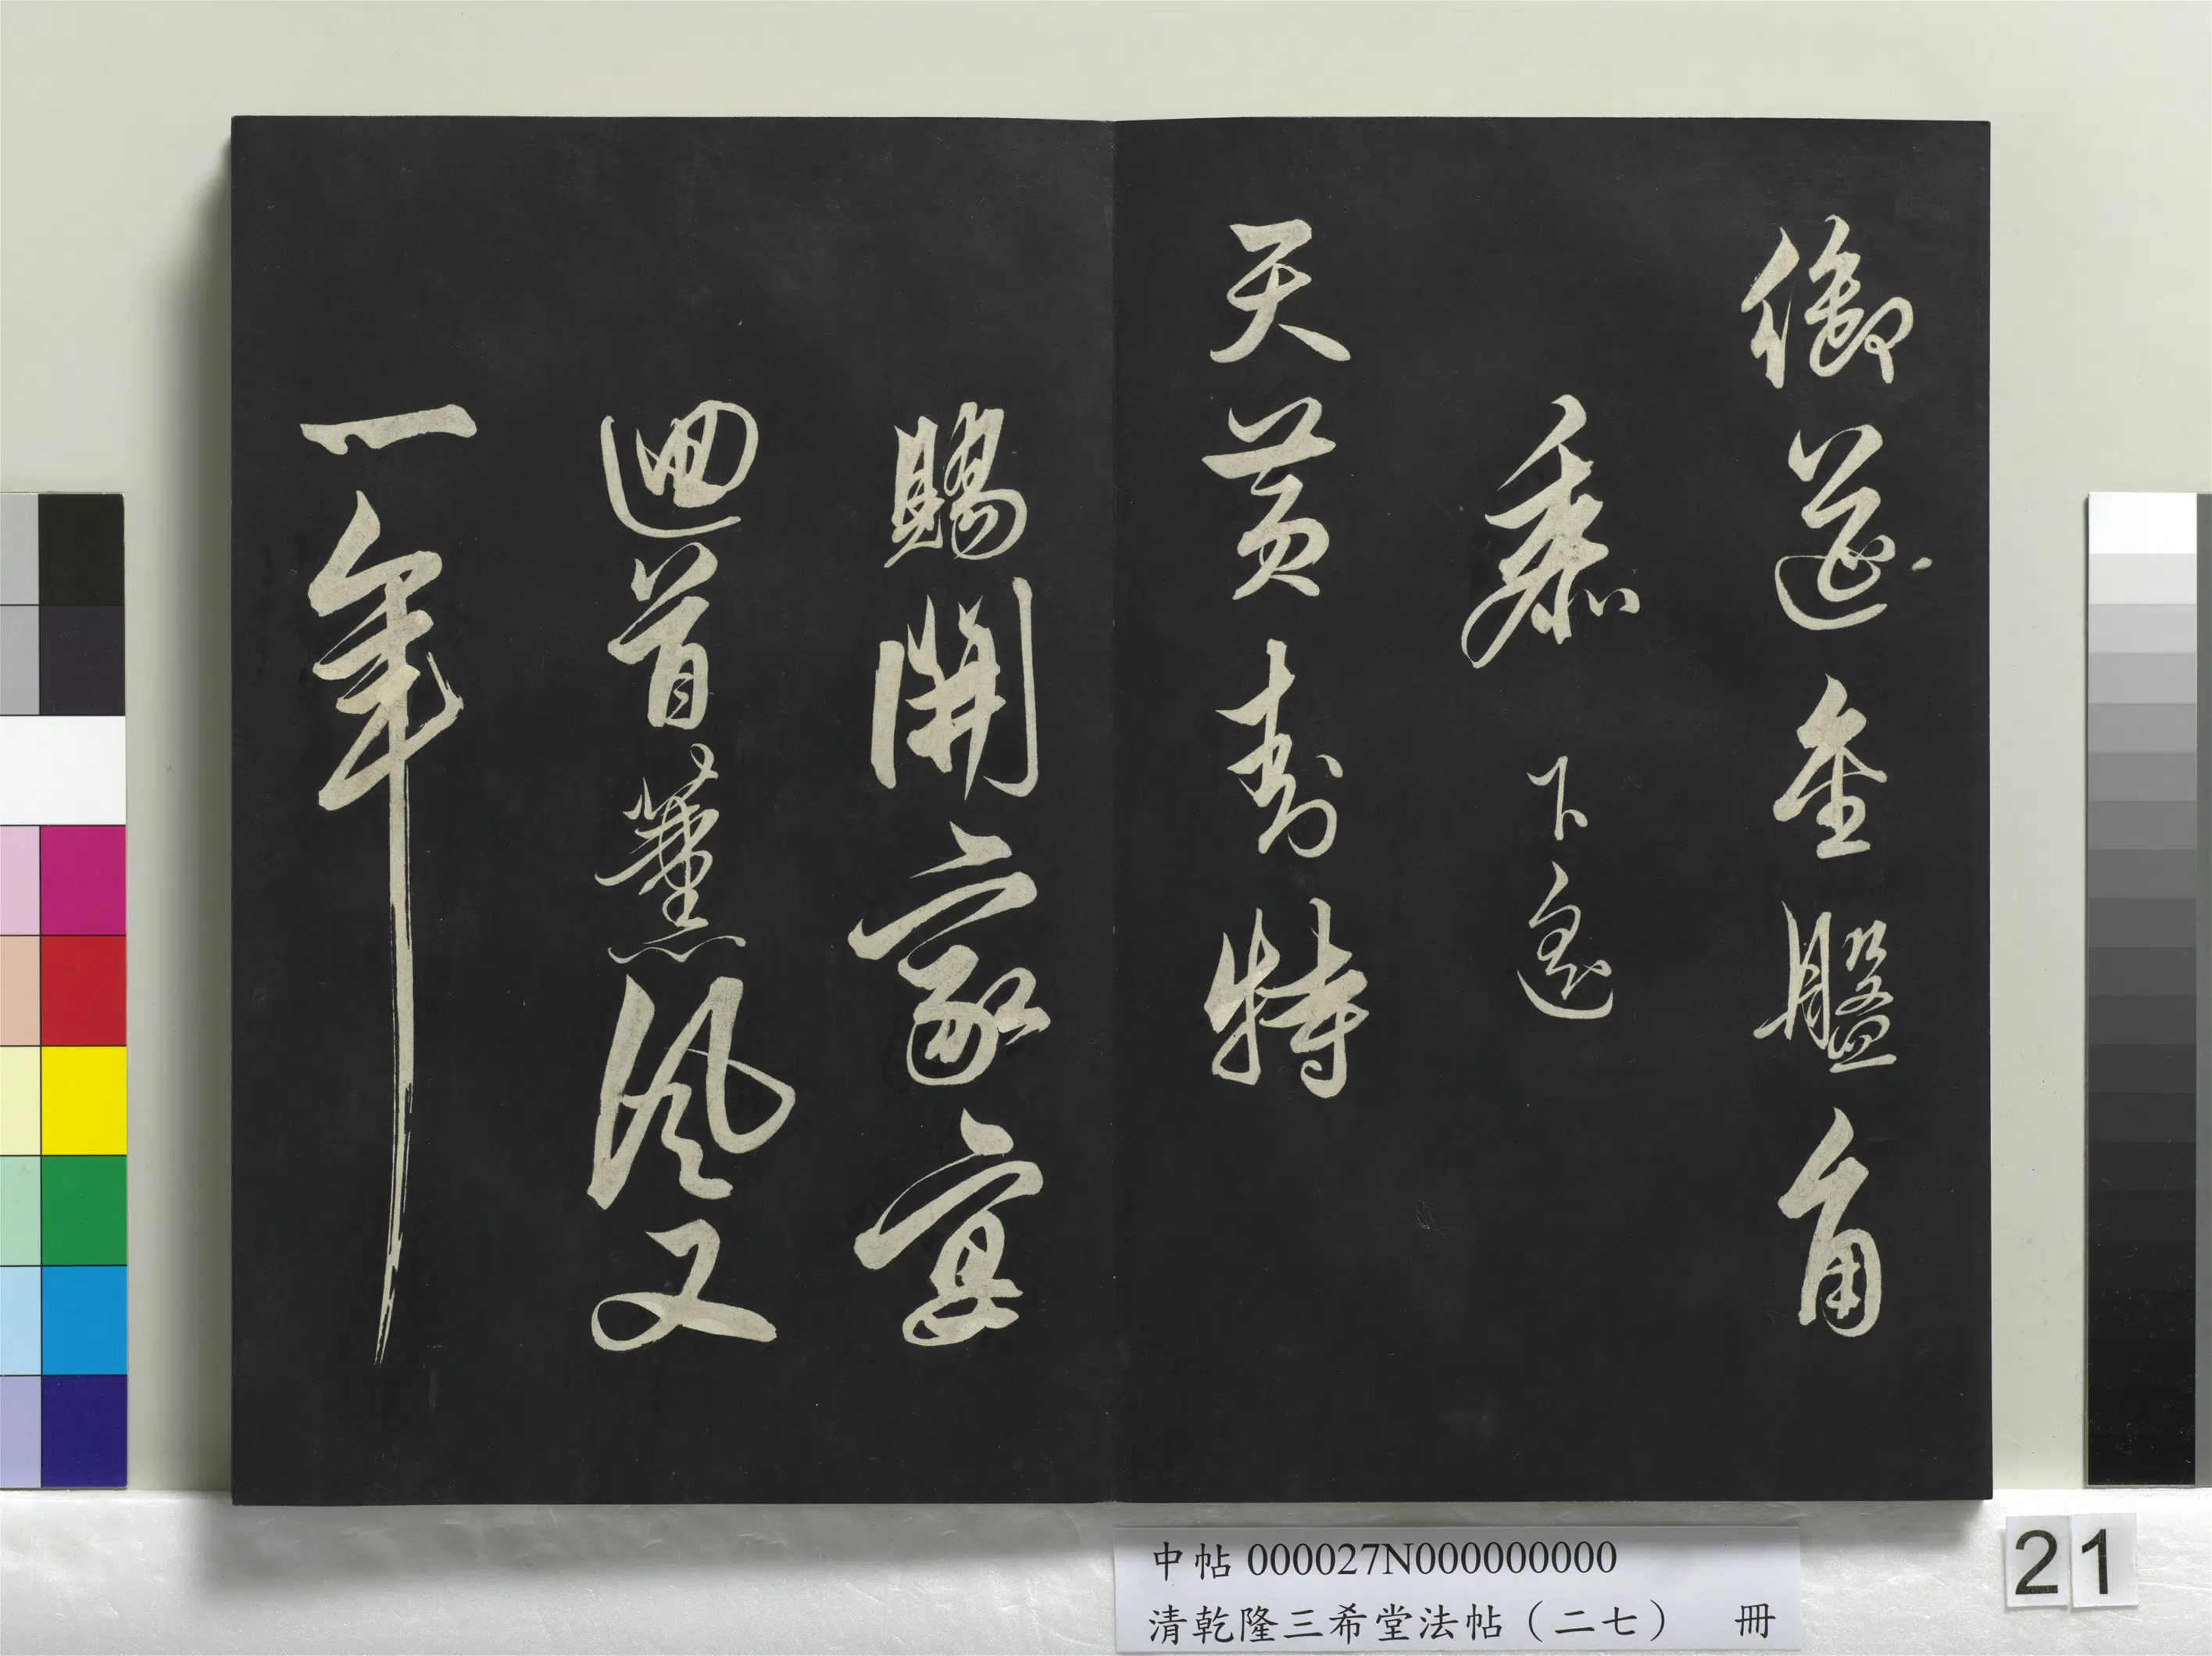 御筵金盤角
黍下遙
天黃封特
賜開家宴
迴首薰風又
一年
中帖 000027N000000000
清乾隆三希堂法帖（二七） 冊
21